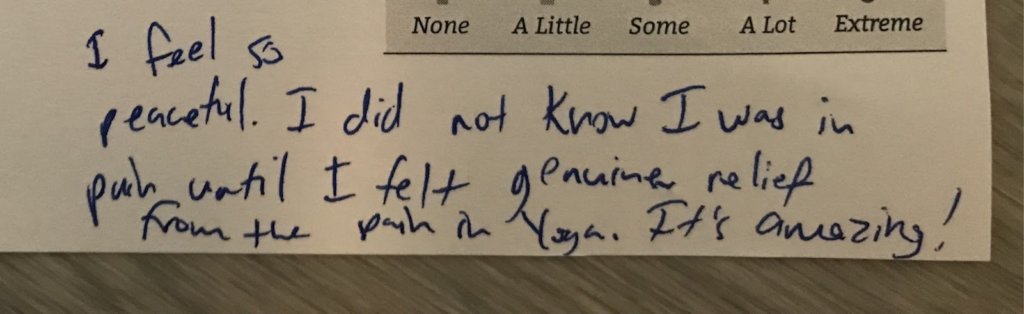 None A Little Some A Lot Extreme
I feel so
peaceful. I did not know I was in
pain until I felt genuine relief
from the pain in Yoga. It's amazing!